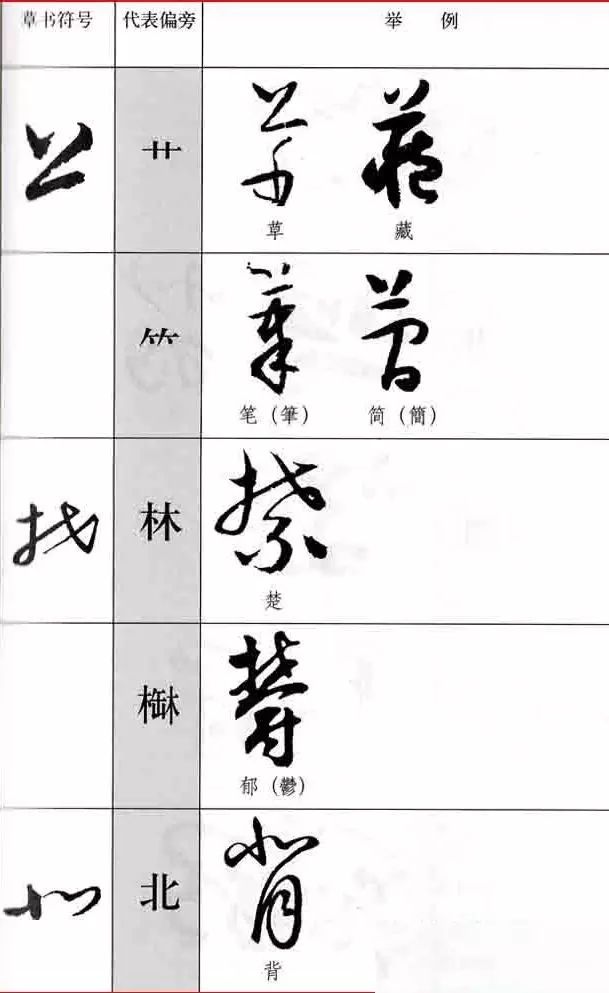 草书符号 代表偏旁 举例
艹 草 藏
⺮ 笔（筆） 简（簡）
林 楚
郁（鬱）
北 背